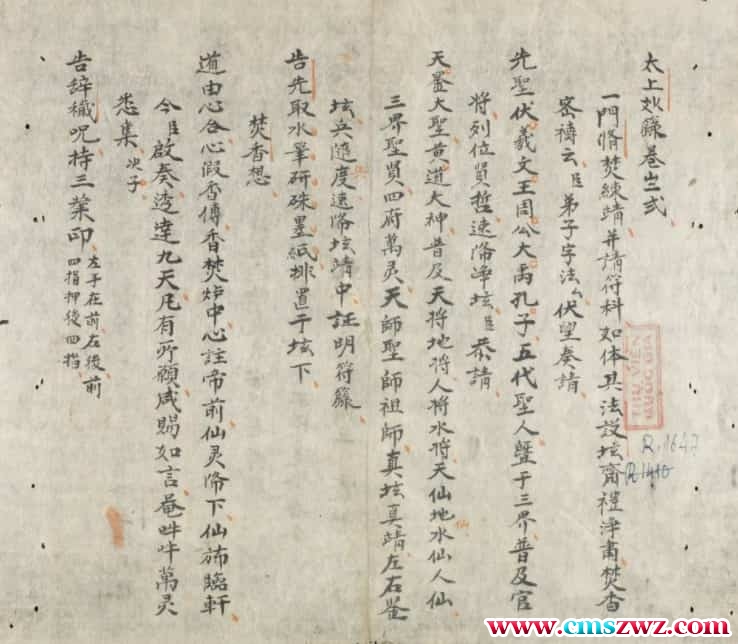 太上𡗉籙卷之弍
一門脩焚練靖并請符科如体其法設坛齋禮淨肅焚香
密禱云臣弟子字法厶伏望奏請
先聖伏羲文王周公大禹孔子五代聖人曁于三界普及官
將列位賢哲速降净坛臣恭請
天罡大聖黄道大神普及天將地將人將水將天仙地仙水仙人仙
三界聖賢四府萬灵天師聖師祖師真坛真靖左右
坛兵隨度速降坛靖中証明符籙
告先取水筆研硃墨紙排置于坛下
焚香想
道由心合心假香傳香焚炉中心註帝前仙灵降下仙斾臨軒
今臣啟奏逹九天凡有所願咸賜如言唵吽吽萬灵
悉集
告辞穢呪持三業印 左手在前右後前
四指押後四指
THƯ VIỆN
QUỐC GIA
R.1647
R.1410
www.cmszwz.com